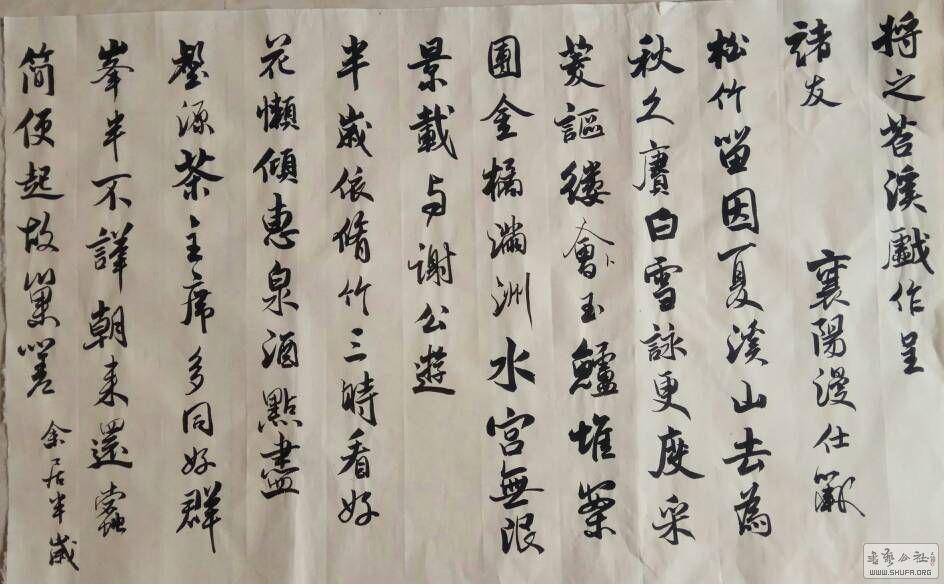 将之苕溪戲作呈
諸友 襄陽漫仕黻
松竹留因夏溪山去為
秋久賡白雪詠更度采
菱謳縷會玉鱸堆案
團金橘滿洲水宮無限
景載与謝公遊
半歲依脩竹三時看好
花懶傾惠泉酒點盡
壑源茶主席多同好群
峯半不譁朝来還蠹
简便起故巢嗟 余居半歲
WWW.SHUFA.ORG